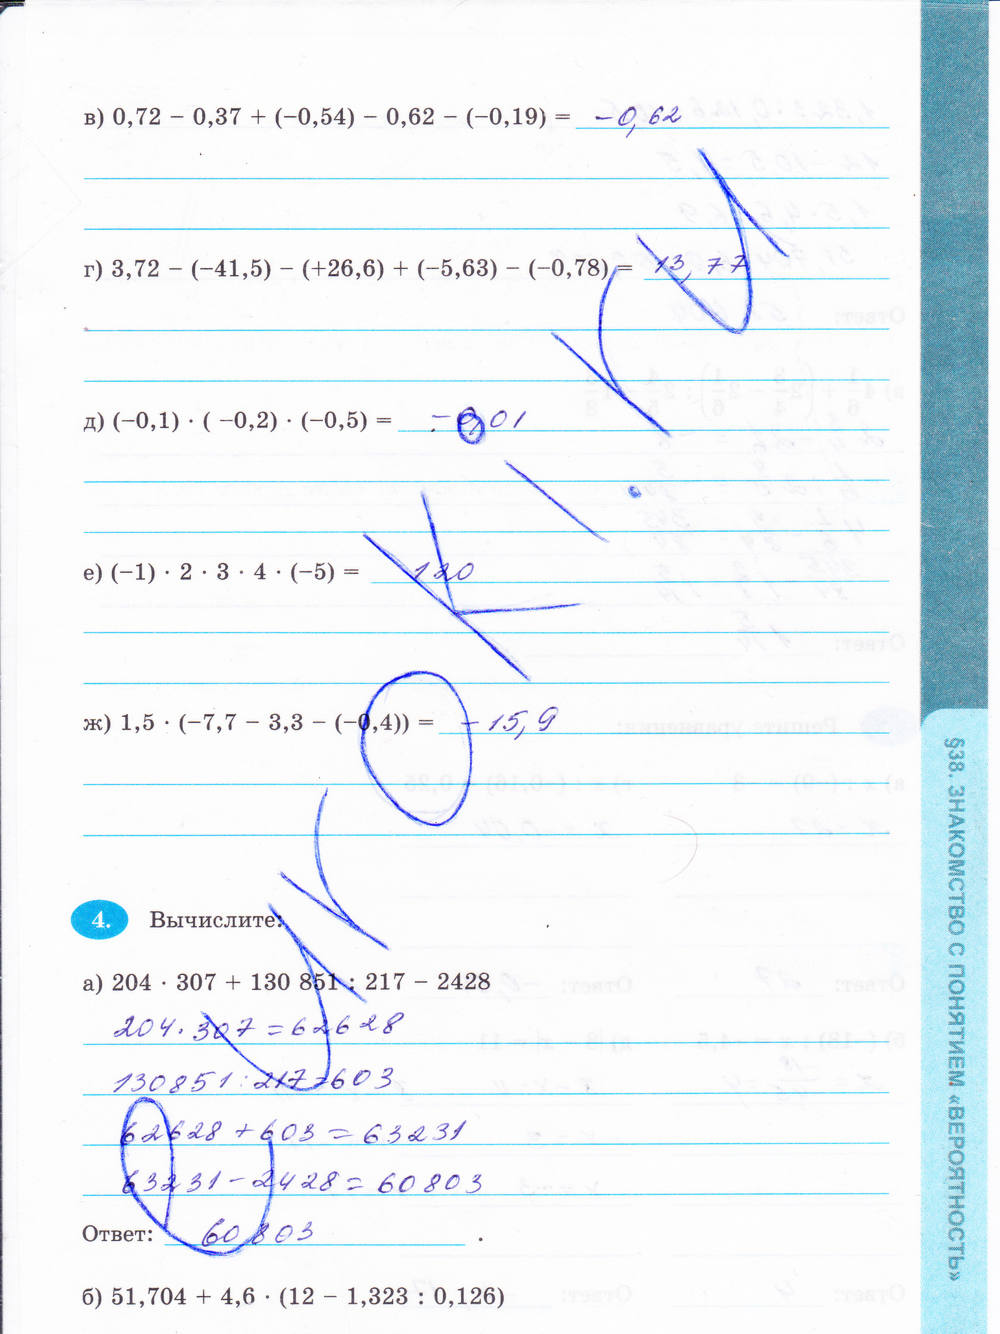 в) 0,72 − 0,37 + (−0,54) − 0,62 − (−0,19) = −0,62
г) 3,72 − (−41,5) − (+26,6) + (−5,63) − (−0,78) = 13,77
д) (−0,1) · ( −0,2) · (−0,5) = −0,01
е) (−1) · 2 · 3 · 4 · (−5) = 120
ж) 1,5 · (−7,7 − 3,3 − (−0,4)) = −15,9
4. Вычислите:
а) 204 · 307 + 130 851 : 217 − 2428
204 · 307 = 62628
130851 : 217 = 603
62628 + 603 = 63231
63231 − 2428 = 60803
Ответ: 60803 .
б) 51,704 + 4,6 · (12 − 1,323 : 0,126)
§38. ЗНАКОМСТВО С ПОНЯТИЕМ «ВЕРОЯТНОСТЬ»